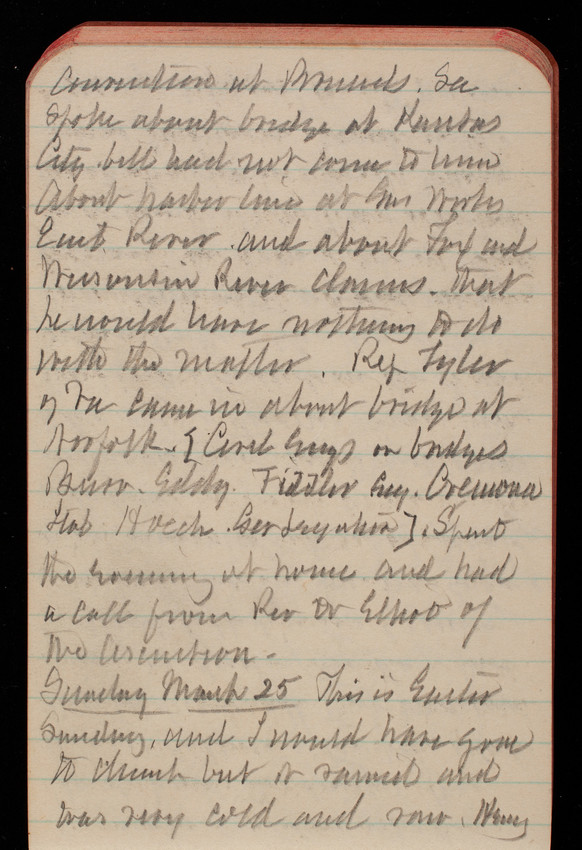 Convention at Brussels. Sec
spoke about bridge at Kansas
City bill had not come to him
About harbor line at Gas Works
East River. and about Fox and
Wisconsin River claims. that
he would have nothing to do
with the matter. Rep Tyler
of Va came in about bridge at
Norfolk. [Civil Engs on bridges
Burr. Eddy Fidler Eng. Cremona
Stab Hoech ]. Spent
the evening at home and had
a call from Rev Dr Elliot of
the Ascension.
Sunday March 25 This is Easter
Sunday, and I would have gone
to church but it rained and
was very cold and raw. Henry